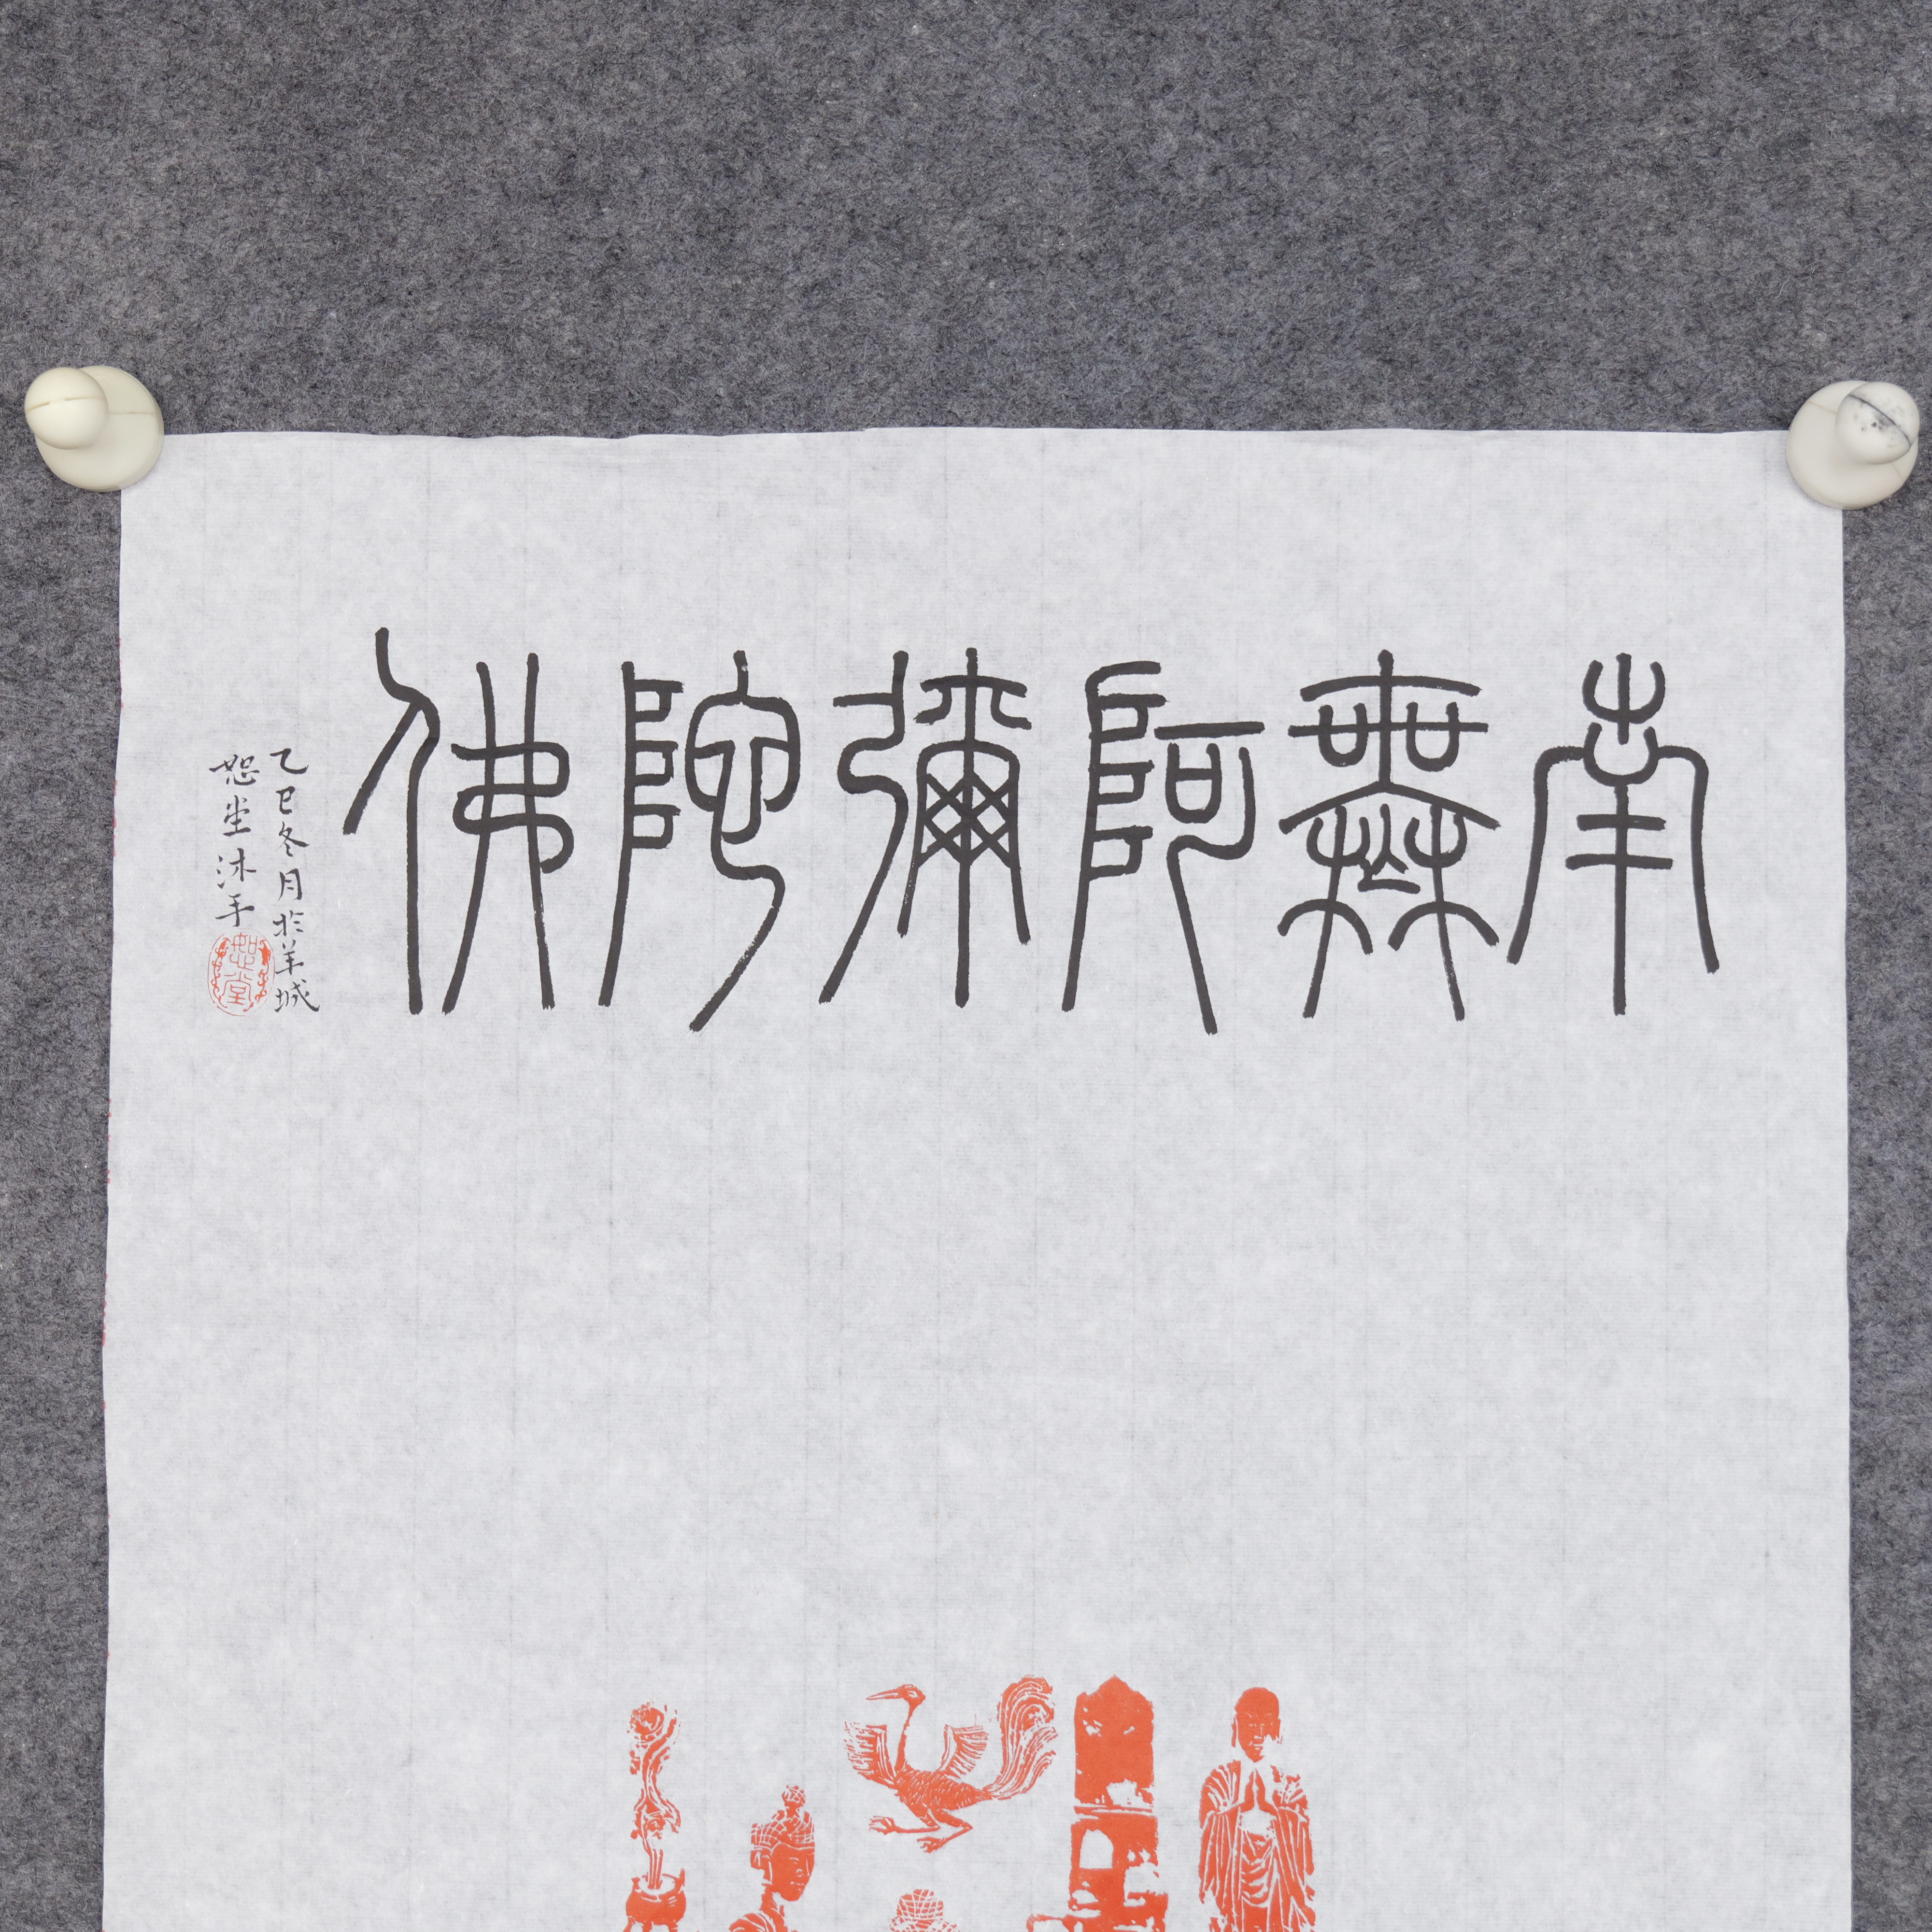 南無阿彌陀佛
乙巳冬月於羊城
恕堂沐手
恕堂